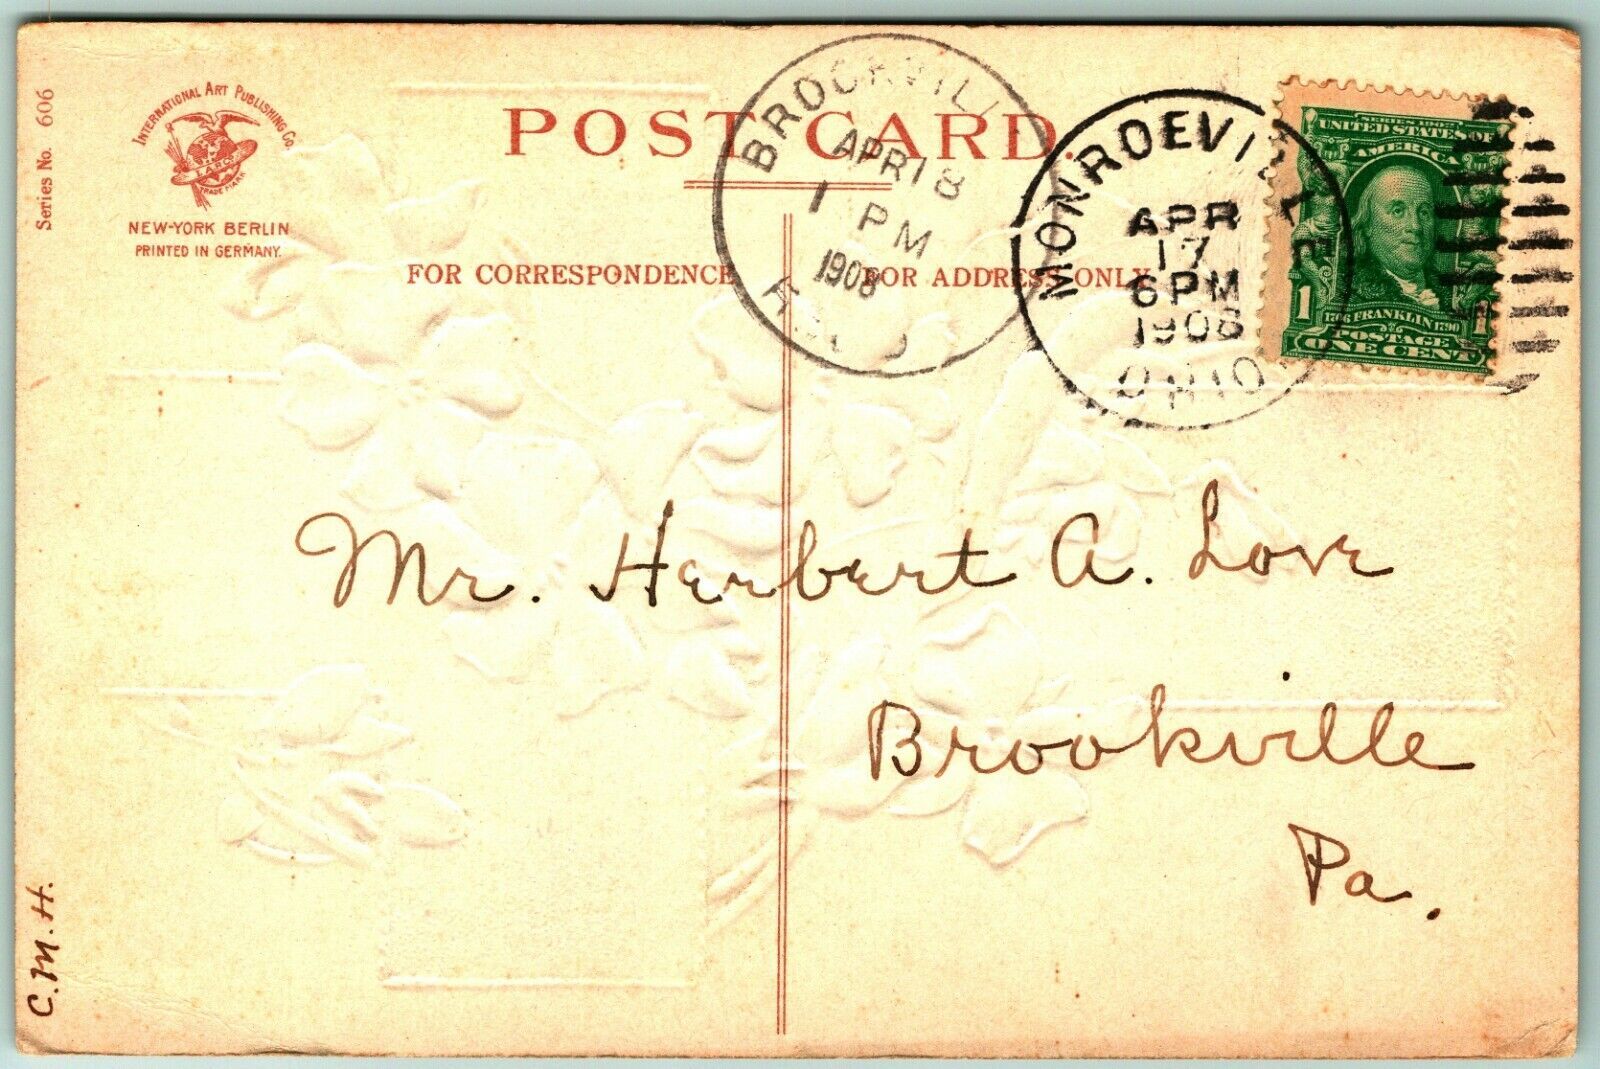 Series No. 606
INTERNATIONAL ART PUBLISHING Co.
TRADE MARK
NEW-YORK BERLIN
PRINTED IN GERMANY.
POST CARD.
FOR CORRESPONDENCE
FOR ADDRESS ONLY
BROOKVILL
APR 18
1 PM
1908
MONROEVILLE
APR
17
6 PM
1908
OHIO
SERIES 1902
UNITED STATES OF
AMERICA
1 1
1706 FRANKLIN 1790
POSTAGE
ONE CENT
Mr. Herbert A. Love
Brookville
Pa.
C. M. H.